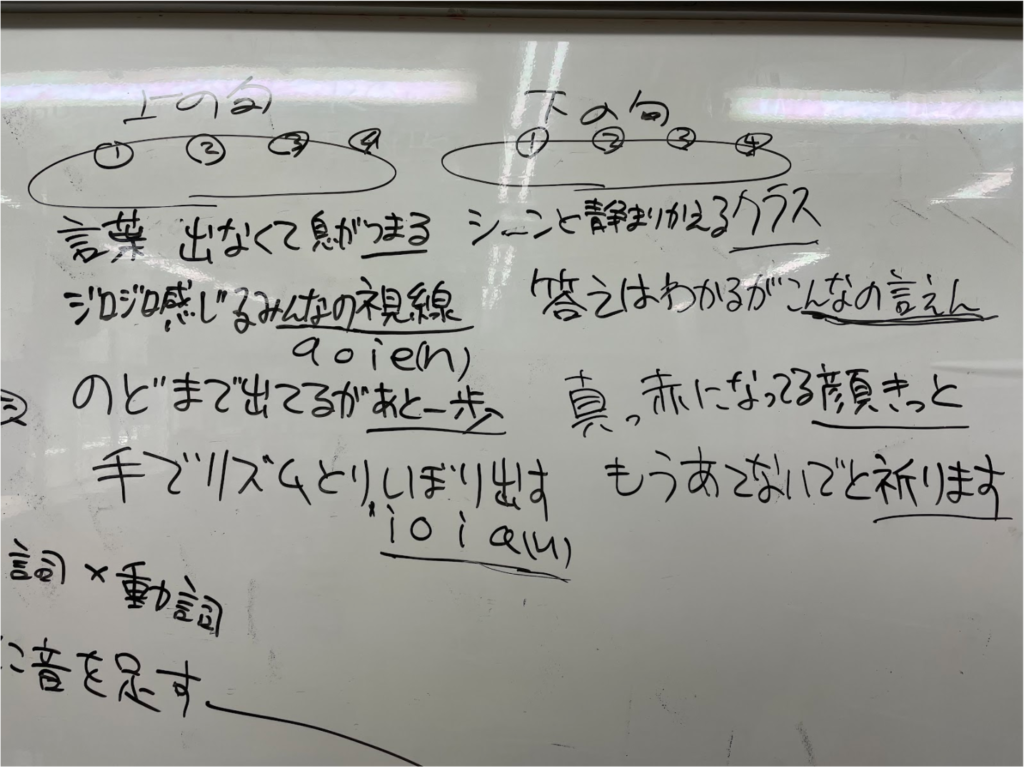 上の句 下の句
① ② ③ ④ ① ② ③ ④
言葉 出なくて息がつまる シーンと静まりかえるクラス
ジロジロ感じるみんなの視線 答えはわかるがこんなの言えん
a o i e(n)
のどまで出てるがあと一歩 真っ赤になってる顔きっと
手でリズムとり、しぼり出す もうあてないでと祈ります
i o i a(u)
詞×動詞
に音を足す